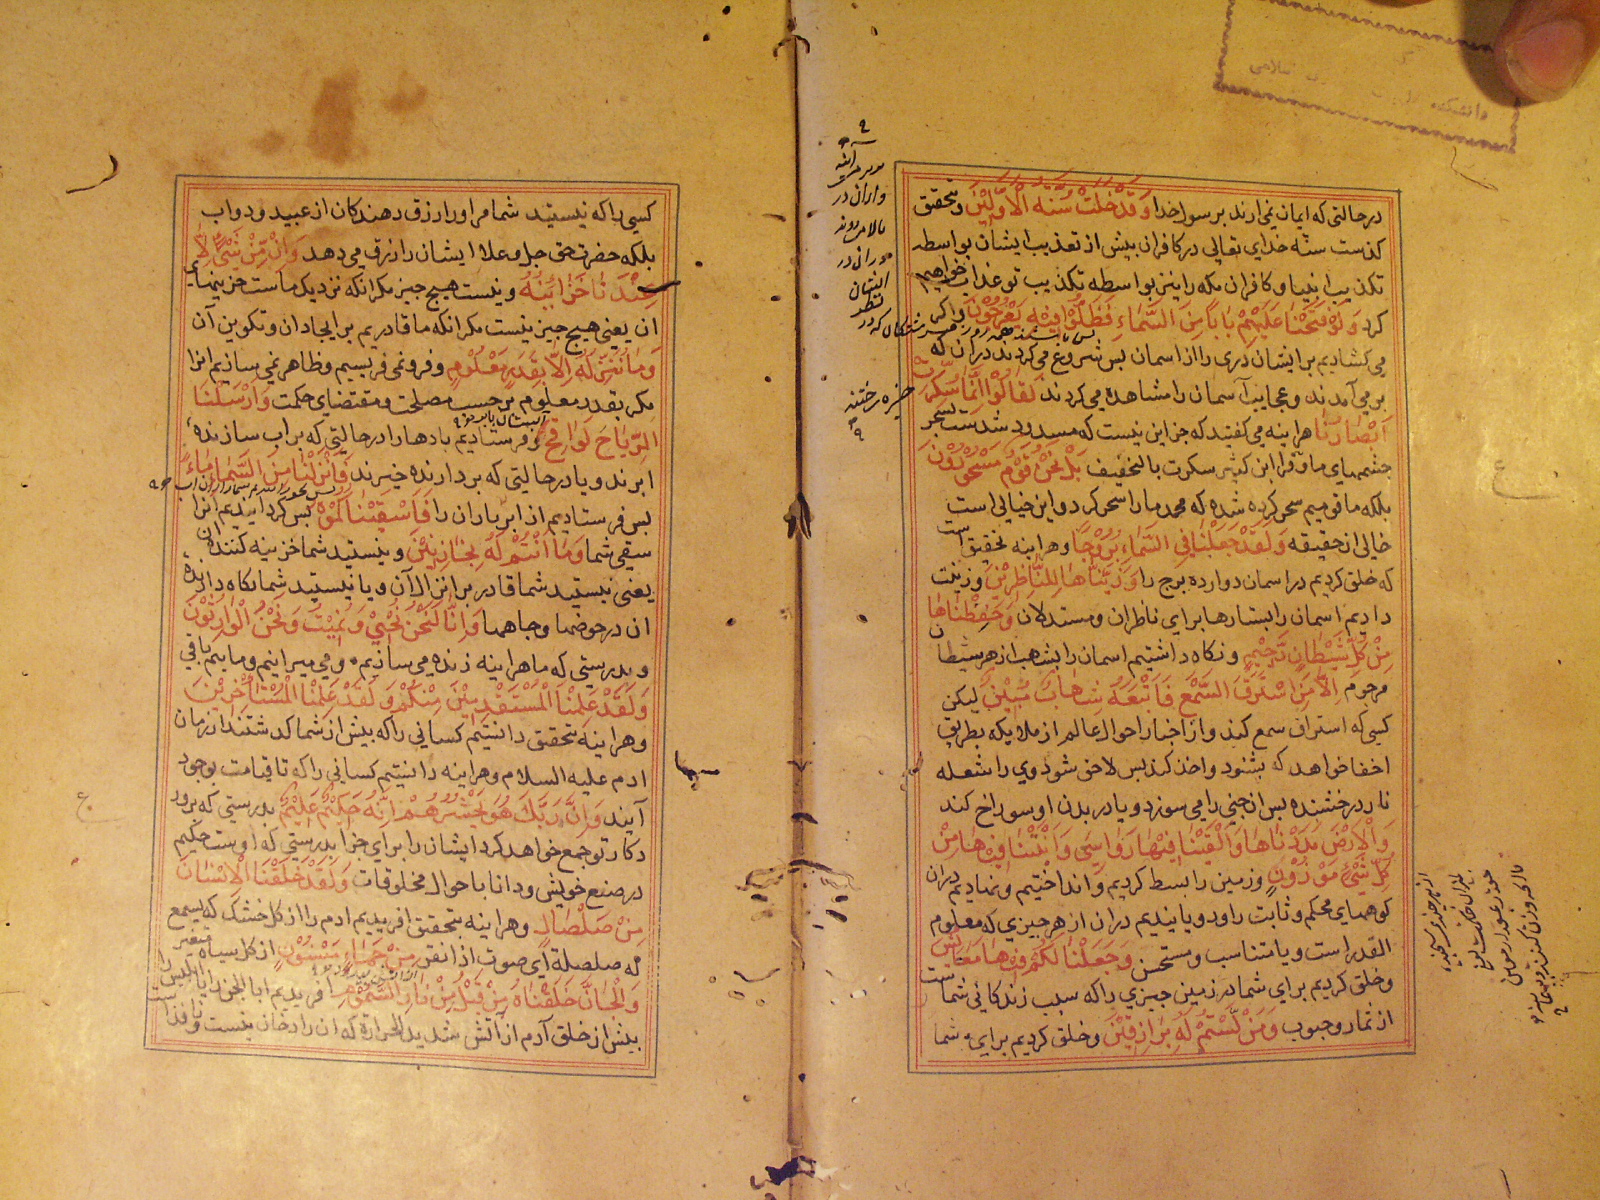 در حالتی که ایمان نمی‌ارند برسول خدا وَقَدْ خَلَتْ سُنَّةُ الْاَوَّلِیْنَ و بتحقیق
کذشت سنّه خدای تعالی در کافران پیش از تعذیب ایشان بواسطه
تکذیب انبیا و کافران مکه را نیز بواسطه تکذیب تو عذاب خواهیم
کرد وَلَوْ فَتَحْنَا عَلَیْهِمْ بَابًا مِنَ السَّمَاءِ فَظَلُّوْا فِیْهِ یَعْرُجُوْنَ و اکر
می کشادیم بر ایشان دری را از اسمان پس شروع می کردند دران که
بر می آمدند و عجایب آسمان را مشاهده می کردند لَقَالُوْا اِنَّمَا سُکِّرَتْ
اَبْصَارُنَا هراینه می کفتند که جز این نیست که مسدود شدست بسحر
چشمهای ما و قرا ابن کثیر سکرت بالتخفیف بَلْ نَحْنُ قَوْمٌ مَسْحُوْرُوْنَ
بلکه ما قومیم سحر کرده شده که محمد ما را سحر کرد و این خیالی است
خالی از حقیقه وَلَقَدْ جَعَلْنَا فِی السَّمَاءِ بُرُوْجًا و هراینه بتحقیق ست
که خلق کردیم در اسمان دوازده برج را وَزَیَّنَّاهَا لِلنَّاظِرِیْنَ و زینت
دادیم اسمان را بستارها برای ناظران و مستدلان وَحَفِظْنَاهَا
مِنْ کُلِّ شَیْطَانٍ رَجِیْمٍ و نکاه داشتیم اسمان را بشهب از هر شیطان
مرجوم اِلَّا مَنِ اسْتَرَقَ السَّمْعَ فَاَتْبَعَهُ شِهَابٌ مُبِیْنٌ لیکن
کسی که استراق سمع کند و از اخبار احوال عالم از ملایکه بطریق
اخفا خواهد که بشنود و اخذ کند پس لاحق شود وی را شعله
نار درخشنده پس از جنی را می سوزد و یا در بدن او سوراخ کند
وَالْاَرْضَ مَدَدْنَاهَا وَاَلْقَیْنَا فِیْهَا رَوَاسِیَ وَاَنْبَتْنَا فِیْهَا مِنْ
کُلِّ شَیْءٍ مَوْزُوْنٍ و زمین را بسط کردیم و انداختیم و نهادیم دران
کوههای محکم و ثابت را و رویانیدیم دران از هر چیزی که معلوم
القدر است و یا متناسب و مستحسن وَجَعَلْنَا لَکُمْ فِیْهَا مَعَایِشَ
و خلق کردیم برای شما در زمین چیزی را که سبب زندکانی شماست
از ثمار و حبوب وَمَنْ لَسْتُمْ لَهُ بِرَازِقِیْنَ و خلق کردیم برای شما
کسی را که نیستید شما مر او را رزق دهندکان از عبید و دواب
بلکه حضرت حق جل و علا ایشان را رزق می دهد وَاِنْ مِنْ شَیْءٍ اِلَّا
عِنْدَنَا خَزَائِنُهُ و نیست هیچ چیز مکر انکه نزدیک ماست خزینهای
ان یعنی هیچ چیز نیست مکر انکه ما قادریم بر ایجاد ان و تکوین آن
وَمَا نُنَزِّلُهُ اِلَّا بِقَدَرٍ مَعْلُوْمٍ و فرو نمی فرستیم و ظاهر نمی سازیم انرا
مکر بقدر معلوم بر حسب مصلحت و مقتضای حکمت وَاَرْسَلْنَا
الرِّیَاحَ لَوَاقِحَ و فرستادیم بادها را در حالتی که پر اب سازنده
ابرند و یا در حالتی که بردارنده خیرند فَاَنْزَلْنَا مِنَ السَّمَاءِ مَاءً
پس فرستادیم از ابر باران را فَاَسْقَیْنَاکُمُوْهُ پس کردانیدیم انرا
سقی شما وَمَا اَنْتُمْ لَهُ بِخَازِنِیْنَ و نیستید شما خزینه کننده ان
یعنی نیستید شما قادر بر انزال آن و یا نیستید شما نکاه دارنده
ان در حوضها و چاهها وَاِنَّا لَنَحْنُ نُحْیِیْ وَنُمِیْتُ وَنَحْنُ الْوَارِثُوْنَ
و بدرستی که ما هراینه زنده می سازیم و می میرانیم و ماییم باقی
وَلَقَدْ عَلِمْنَا الْمُسْتَقْدِمِیْنَ مِنْکُمْ وَلَقَدْ عَلِمْنَا الْمُسْتَاْخِرِیْنَ
و هراینه بتحقیق دانستیم کسانی را که پیش از شما کذشتند از زمان
ادم علیه السلام و هراینه دانستیم کسانی را که تا قیامت بوجود
آیند وَاِنَّ رَبَّکَ هُوَ یَحْشُرُهُمْ اِنَّهُ حَکِیْمٌ عَلِیْمٌ بدرستی که پرورد
دکار تو جمع خواهد کرد ایشان را برای جزا بدرستی که اوست حکیم
در صنع خویش و دانا باحوال مخلوقات وَلَقَدْ خَلَقْنَا الْاِنْسَانَ
مِنْ صَلْصَالٍ و هراینه بتحقیق افریدیم ادم را از کل خشک که یسمع
له صلصلة ای صوت اذا نقر مِنْ حَمَاءٍ مَسْنُوْنٍ از کل سیاه متغیر
وَالْجَانَّ خَلَقْنَاهُ مِنْ قَبْلُ مِنْ نَارِ السَّمُوْمِ افریدیم ابا الجن را یا ابلیس را
پیش از خلق آدم از آتش شدید الحرارة که ان را دخان نیست و نافذ است